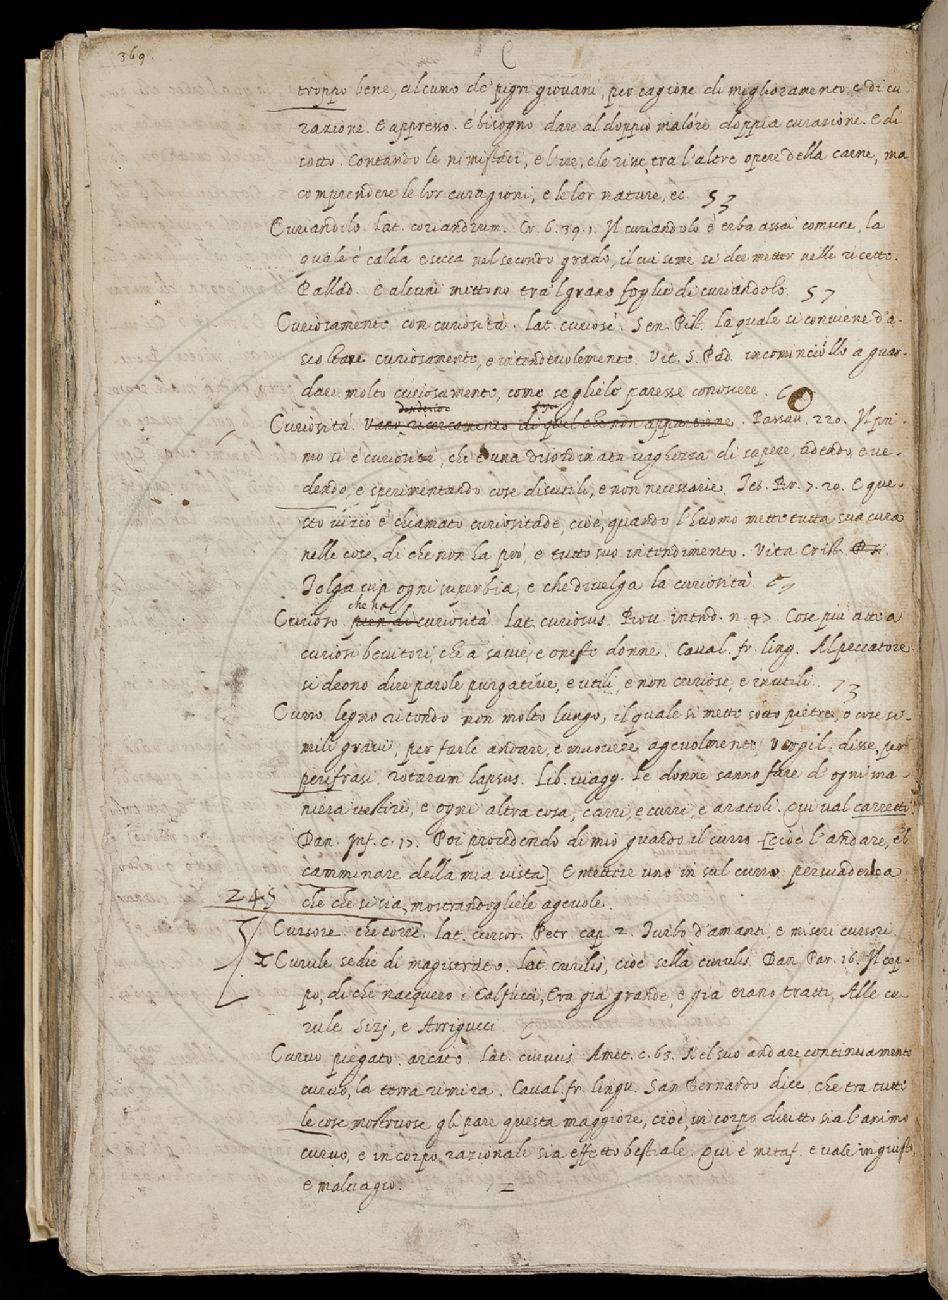 369.
C
troppo bene, alcuno de' pigri giovani, per cagione di miglioramento, e di cu-
razione. E appresso. E bisogno dare al doppio malore doppia curazione. E di
sotto. Contando le nimistadi, e l'ire, e le risse, tra l'altre opere della carne, ma
comprendere le lor curagioni, e le lor nature, ec. 53
Curiandolo. Lat. coriandrum. Cr. 6. 39. 1. Il curiandolo è erba assai comune, la
quale è calda e secca nel secondo grado, il cui seme si dee metter nelle ricette.
Pallad. E alcuni mettono tra'l grano foglie di curiandolo. 57
Curiosamente. con curiosità. lat. curiosè. Sen. Pist. la quale si conviene d'a-
scoltare curiosamente, e intendevolemente. Vit. S. Pad. incominciollo a guar-
dare molto curiosamente, come se gliele paresse conoscere. 6
desiderio
Curiosità. Vano ricercamento di quel che non appartiene. Passav. 220. Il pri-
mo si è curiosità, che è una disordinata vaghezza di sapere, udendo, e ve-
dendo, e sperimentando cose disutili, e non necessarie. Tes. Br. 7. 20. E que-
sto vizio è chiamato curiositade, cioè, quando l'huomo mette tutta sua cura
nelle cose, di che non ha prò, e tutto suo intendimento. Vita Crist.
Tolga via ogni superbia, e che divelga la curiosità.
che ha
Curioso pien di curiosità. Lat. curiosus. Prov. introd. n. 47 Cose più atte a
curiosi bevitori, che a savie, e oneste donne. Caval. fr. ling. Al peccatore
si deono dire parole purgative, e utili, e non curiose, e inutili. 73
Curro. legno ritondo non molto lungo, il quale si mette sotto pietre, o cose si-
mili gravi, per farle andare, e muovere agevolmente, Vergil. disse per
perifrasi rotarum lapsus. Lib. viagg. Le donne sanno fare d'ogni ma-
niera vestire, e ogni altra cosa, carri, e curri, e aratoli. Qui val carretti.
Dan. Inf. c. 17. Poi procedendo di mio guardo il curro. [cioè l'andare, e'l
camminare della mia vista] E mettere uno in sul curro. persuaderlo a
245
che che si sia, mostrandogliele agevole.
Cursore. che corre. lat. cursor. Petr. cap. 2. Turbo d'amanti, e miseri cursori.
I Curule sedie di magistrato. Lat. curulis, cioè sella curulis. Dan. Par. 16. Il cep-
po, di che nacquero i Calfucci, Era già grande, e già erano tratti, Alle cu-
rule Sizj, e Arrigucci.
Curvo piegato. arcato. Lat. curvus. Amet. c. 63. Nel suo andare continuamente
curvo, la terra rimira. Caval. fr. lingu. San Bernardo dice, che tra tutte
le cose mostruose gli pare questa maggiore, cioè, in corpo diritto sia l'animo
curvo, e in corpo razionale sia effetto bestiale. Qui è metaf. e vale ingiusto,
e malvagio.